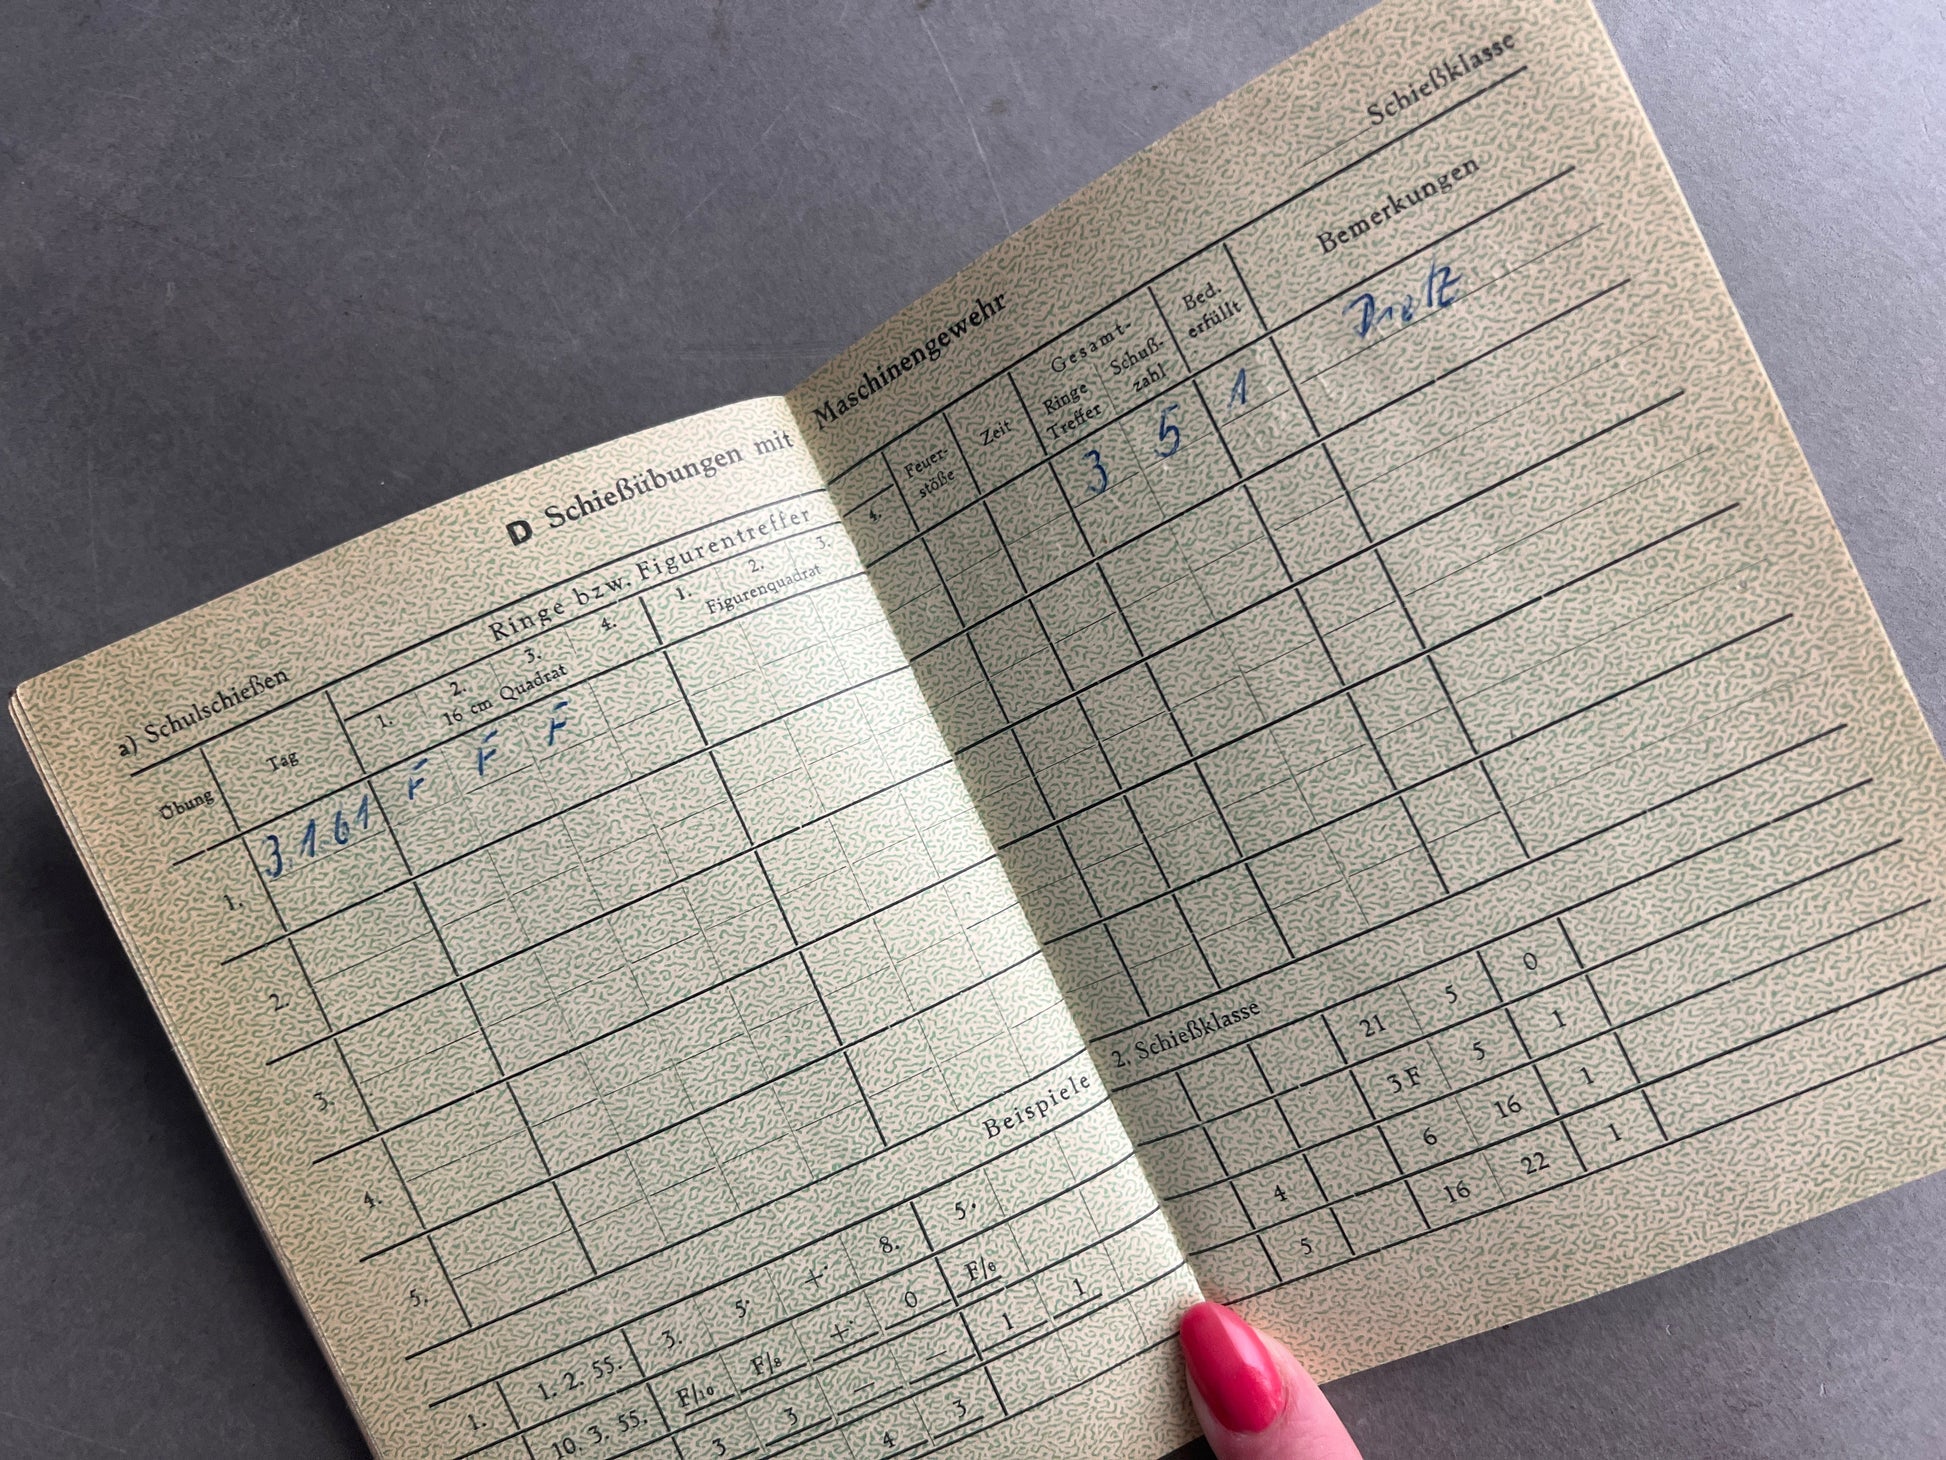 D Schießübungen mit
a) Schulschießen
Ringe bzw. Figurentreffer
Übung
Tag
1. 2. 3. 4.
16 cm Quadrat
1. 2. 3.
Figurenquadrat
1. 3.1.61 F F F
2.
3.
4.
5.
Beispiele
3. 5. +. 8. 5.
1. 1. 2. 55. F/10 F/8 +. 0 F/6
10. 3. 55. 3 3 — — 1 1
4 3
Maschinengewehr
Schießklasse
4.
Feuer-
stöße
Zeit
Gesamt-
Ringe
Treffer
Schuß-
zahl
Bed.
erfüllt
Bemerkungen
3 5 1
2. Schießklasse
21 5 0
3 F 5 1
4 6 16 1
5 16 22 1